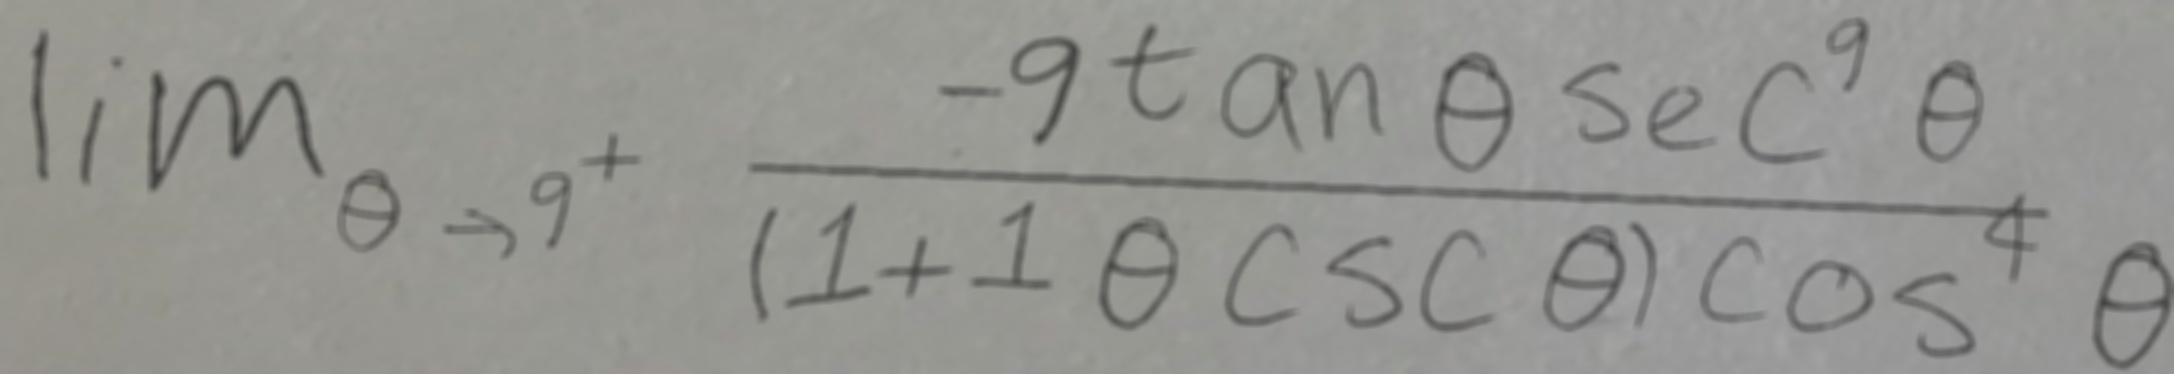 \lim_{\theta \to 9^+} \frac{-9 \tan \theta \sec^9 \theta}{(1 + 1 \theta \csc \theta) \cos^4 \theta}